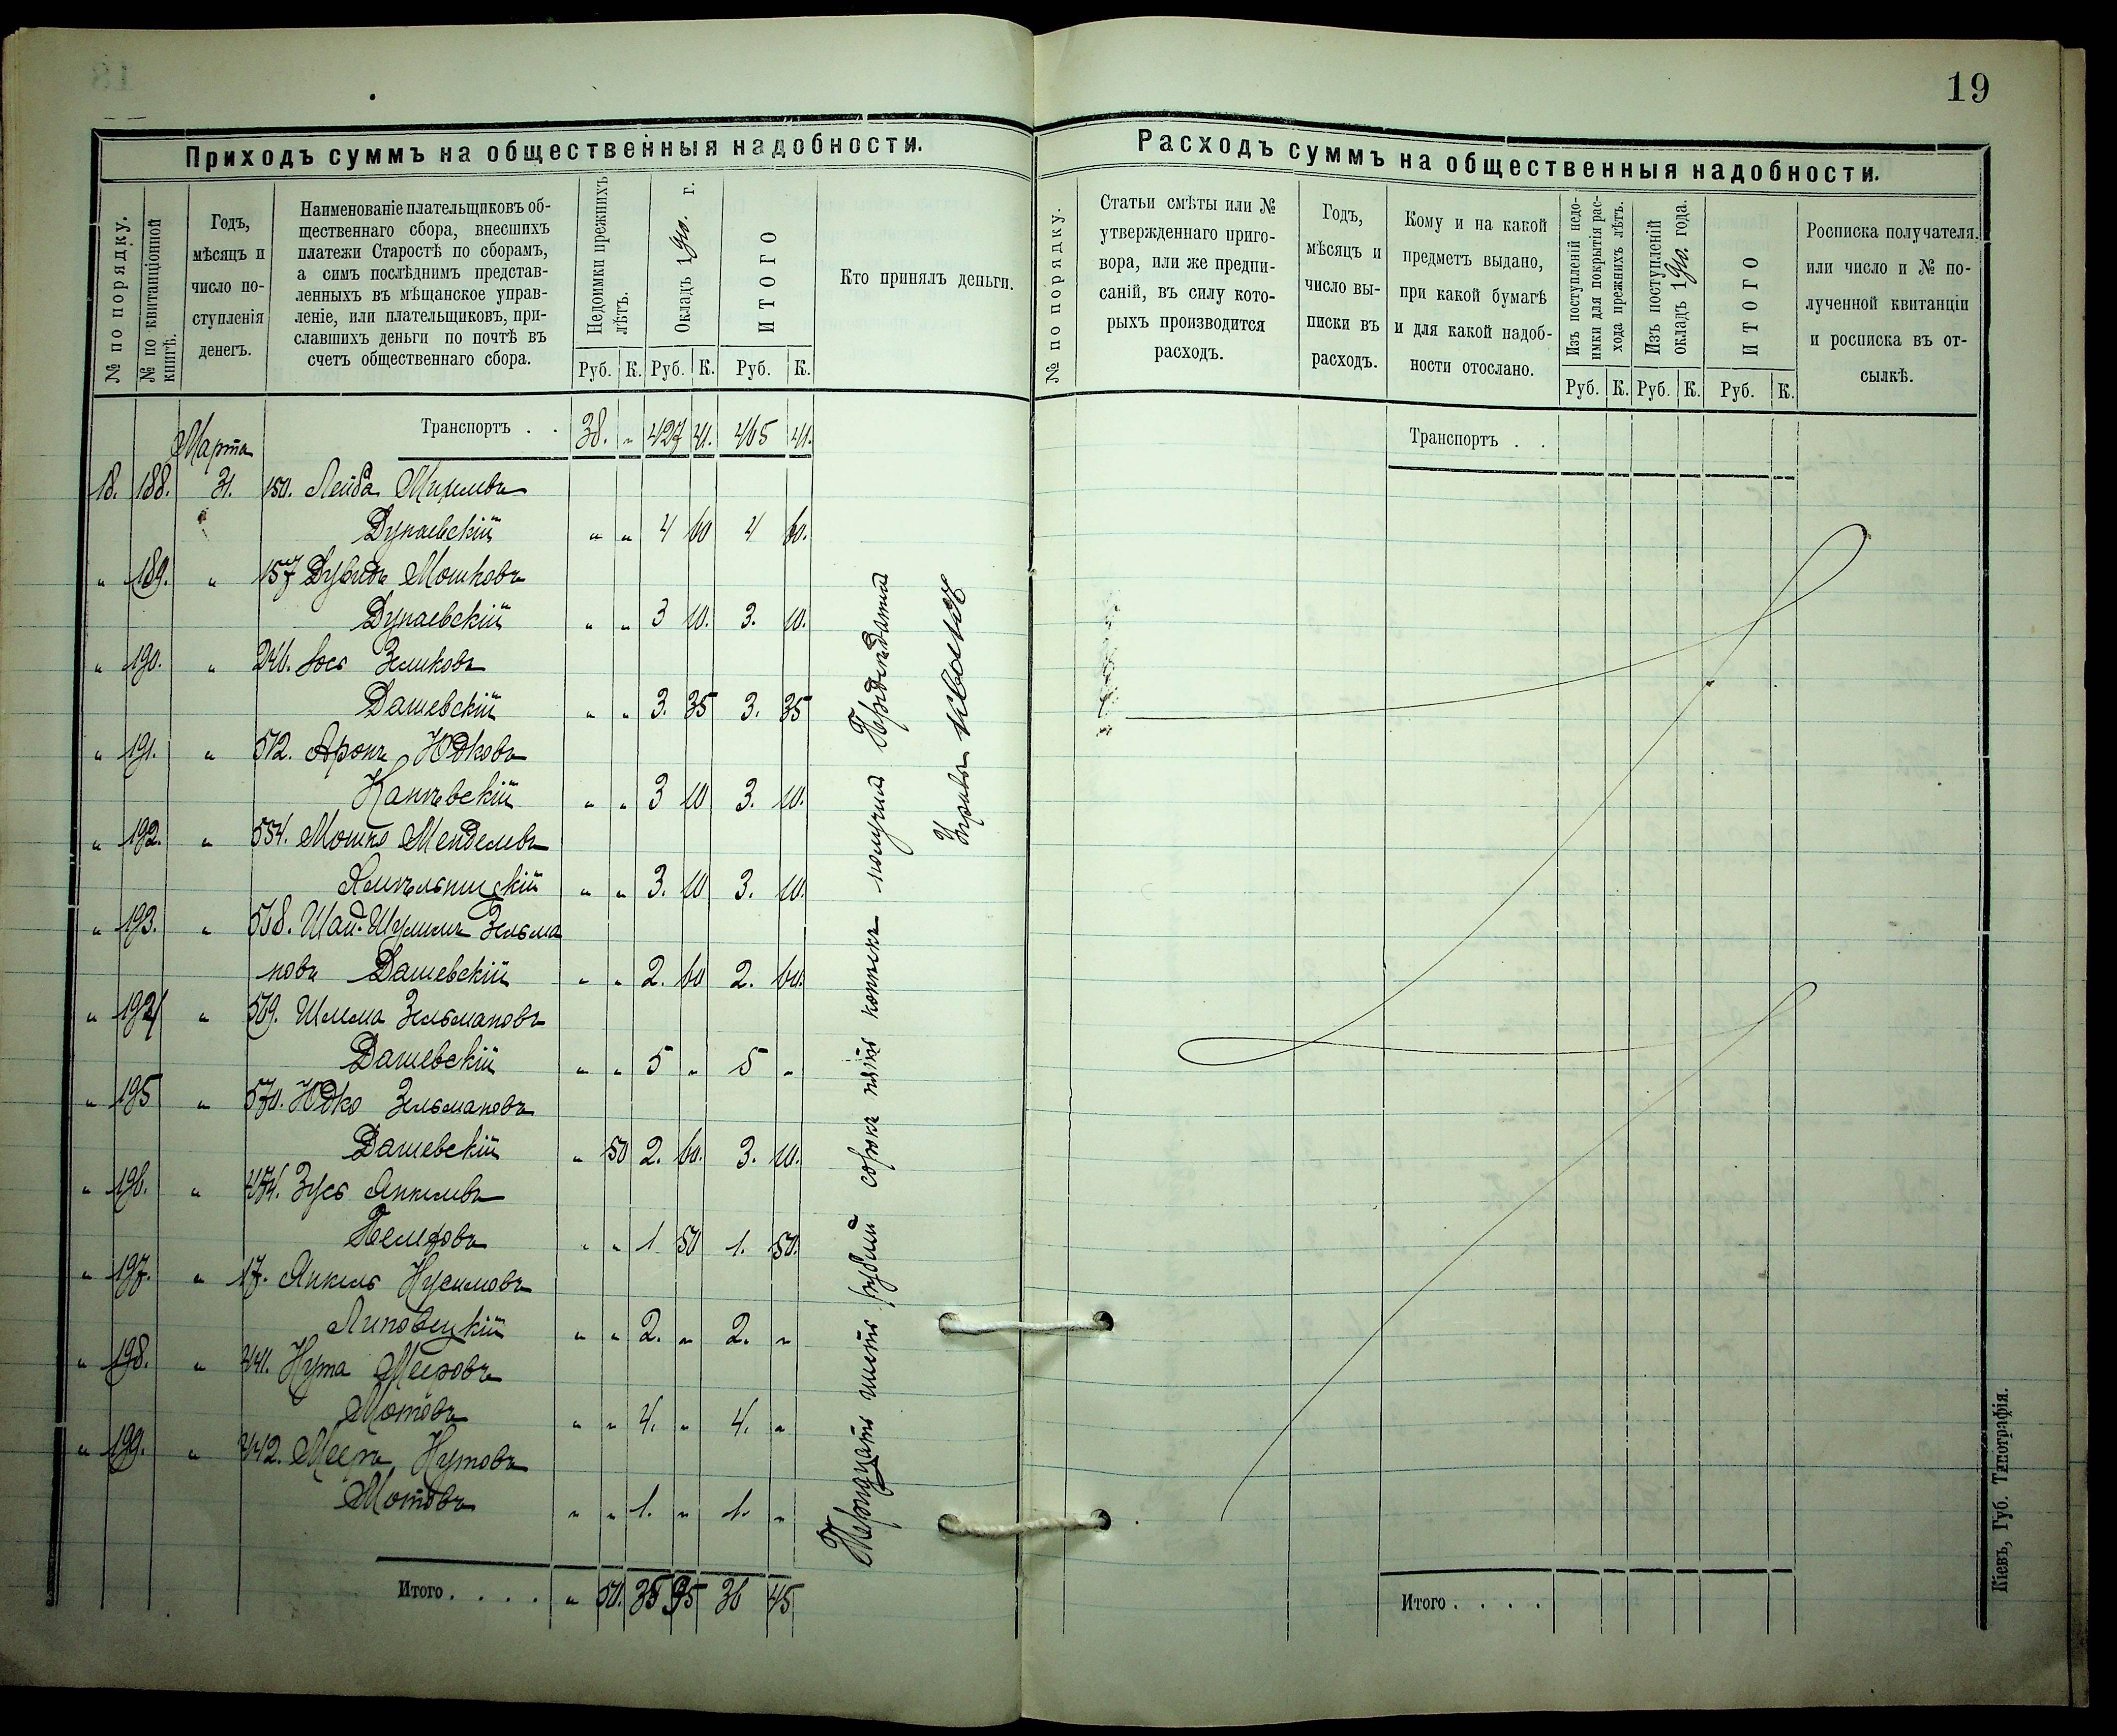 19
Приходъ суммъ на общественныя надобности.
№ по порядку.
№ по квитанціонной книгѣ.
Годъ,
мѣсяцъ и
число по-
ступленія
денегъ.
Наименованіе плательщиковъ об-
щественнаго сбора, внесшихъ
платежи Старостѣ по сборамъ,
а симъ послѣднимъ представ-
ленныхъ въ мѣщанское управ-
леніе, или плательщиковъ, при-
славшихъ деньги по почтѣ въ
счетъ общественнаго сбора.
Недоимки прежнихъ
лѣтъ.
Окладъ 1910. г.
ИТОГО
Кто принялъ деньги.
Руб. К. Руб. К. Руб. К.
Транспортъ . . 38. " 427 41. 465 41.
Марта
18. 188. 31. 150. Лейба
Дунаевскій " " 4 60 4 60.
" 189. " 157 Дувидъ Мошковъ
Дунаевскій " " 3 10. 3. 10.
" 190. " 246. Іось Зелиховъ
Дашевскій " " 3. 35 3. 35
" 191. " 512. Аронъ Юдковъ
Каневскій " " 3 10 3. 10.
" 192. " 554. Мошко Менделевъ
" " 3. 10 3. 10.
" 193. " 568. Шая-Шулимъ Зельма
новъ Дашевскій " " 2. 60 2. 60.
" 194 " 569. Шлема Зельмановъ
Дашевскій " " 5 " 5 "
" 195 " 570. Юдко Зельмановъ
Дашевскій " 50 2. 60. 3. 10.
" 196. " 474. Зусь Янкелевъ
" " 1 50 1. 50.
" 197. " 17. Янкель Нусимовъ
Липовецкій " " 2. " 2. "
" 198. " 441. Нута Мееровъ
Мотовъ " " 4. " 4. "
" 199. " 442. Мееръ Нутовъ
Мотовъ " " 1. " 1. "
Итого . . . . " 50. 35 95 36 45
Тридцать шесть рублей сорокъ пять копеекъ получилъ
Расходъ суммъ на общественныя надобности.
№ по порядку.
Статьи смѣты или №
утвержденнаго приго-
вора, или же предпи-
саній, въ силу кото-
рыхъ производится
расходъ.
Годъ,
мѣсяцъ и
число вы-
писки въ
расходъ.
Кому и на какой
предметъ выдано,
при какой бумагѣ
и для какой надоб-
ности отослано.
Изъ поступленій недо-
имки для покрытія рас-
хода прежнихъ лѣтъ.
Изъ поступленій
окладъ 1910. года.
ИТОГО
Росписка получателя,
или число и № по-
лученной квитанціи
и росписка въ от-
сылкѣ.
Руб. К. Руб. К. Руб. К.
Транспортъ . .
Итого . . . .
Кіевъ, Губ. Типографія.